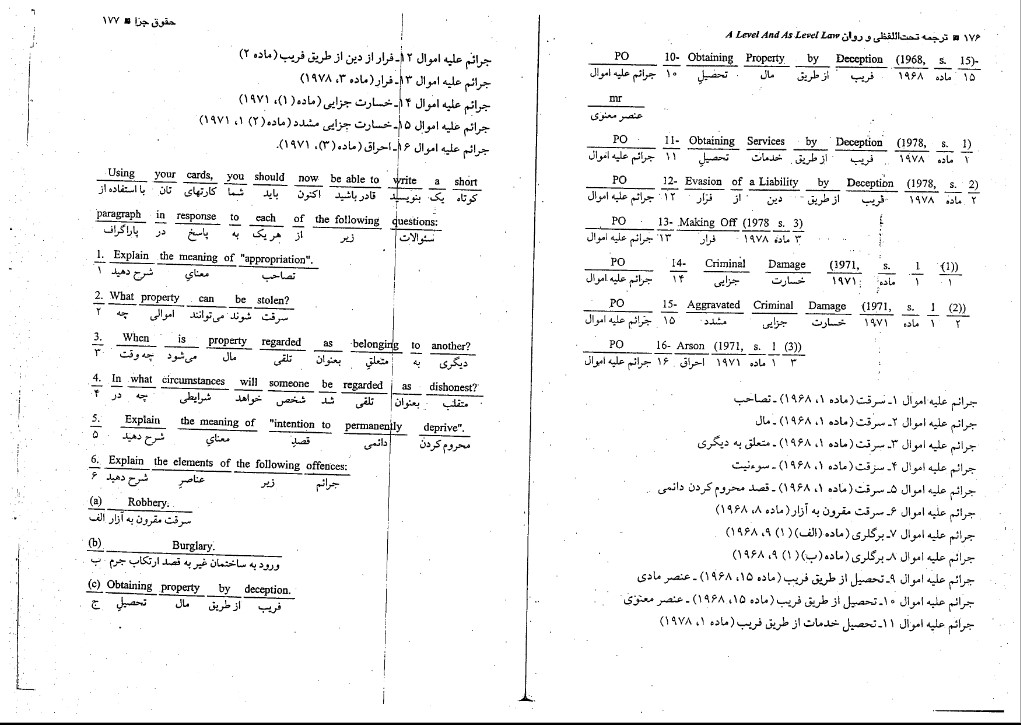 ۱۷۶ ■ ترجمه تحت‌اللفظی و روان A Level And As Level Law
PO 10- Obtaining Property by Deception (1968, s. 15)-
جرائم علیه اموال ۱۰ تحصیل مال از طریق فریب ۱۹۶۸ ماده ۱۵
mr
عنصر معنوی
PO 11- Obtaining Services by Deception (1978, s. 1)
جرائم علیه اموال ۱۱ تحصیل خدمات از طریق فریب ۱۹۷۸ ماده ۱
PO 12- Evasion of a Liability by Deception (1978, s. 2)
جرائم علیه اموال ۱۲ فرار از دین از طریق فریب ۱۹۷۸ ماده ۲
PO 13- Making Off (1978 s. 3)
جرائم علیه اموال ۱۳ فرار ۱۹۷۸ ماده ۳
PO 14- Criminal Damage (1971, s. 1 (1))
جرائم علیه اموال ۱۴ جزایی خسارت ۱۹۷۱ ماده ۱ ۱
PO 15- Aggravated Criminal Damage (1971, s. 1 (2))
جرائم علیه اموال ۱۵ مشدد جزایی خسارت ۱۹۷۱ ماده ۱ ۲
PO 16- Arson (1971, s. 1 (3))
جرائم علیه اموال ۱۶ احراق ۱۹۷۱ ماده ۱ ۳
جرائم علیه اموال ۱ـ سرقت (ماده ۱، ۱۹۶۸) ـ تصاحب
جرائم علیه اموال ۲ـ سرقت (ماده ۱، ۱۹۶۸) ـ مال
جرائم علیه اموال ۳ـ سرقت (ماده ۱، ۱۹۶۸) ـ متعلق به دیگری
جرائم علیه اموال ۴ـ سرقت (ماده ۱، ۱۹۶۸) ـ سوءنیت
جرائم علیه اموال ۵ـ سرقت (ماده ۱، ۱۹۶۸) ـ قصد محروم کردن دائمی
جرائم علیه اموال ۶ـ سرقت مقرون به آزار (ماده ۸، ۱۹۶۸)
جرائم علیه اموال ۷ـ برگلری (ماده (الف) (۱) ۹، ۱۹۶۸)
جرائم علیه اموال ۸ـ برگلری (ماده (ب) (۱) ۹، ۱۹۶۸)
جرائم علیه اموال ۹ـ تحصیل از طریق فریب (ماده ۱۵، ۱۹۶۸) ـ عنصر مادی
جرائم علیه اموال ۱۰ـ تحصیل از طریق فریب (ماده ۱۵، ۱۹۶۸) ـ عنصر معنوی
جرائم علیه اموال ۱۱ـ تحصیل خدمات از طریق فریب (ماده ۱، ۱۹۷۸)
حقوق جزا ■ ۱۷۷
جرائم علیه اموال ۱۲ـ فرار از دین از طریق فریب (ماده ۲)
جرائم علیه اموال ۱۳ـ فرار (ماده ۳، ۱۹۷۸)
جرائم علیه اموال ۱۴ـ خسارت جزایی (ماده (۱)، ۱۹۷۱)
جرائم علیه اموال ۱۵ـ خسارت جزایی مشدد (ماده (۲) ۱، ۱۹۷۱)
جرائم علیه اموال ۱۶ـ احراق (ماده (۳)، ۱۹۷۱).
Using your cards, you should now be able to write a short
با استفاده از کارتهای تان شما باید اکنون قادر باشید بنویسید یک کوتاه
paragraph in response to each of the following questions:
پاراگراف در پاسخ به هر یک از زیر سئوالات
1. Explain the meaning of "appropriation".
۱ شرح دهید معنای تصاحب
2. What property can be stolen?
۲ چه اموالی می‌توانند شوند سرقت
3. When is property regarded as belonging to another?
۳ چه وقت می‌شود مال تلقی بعنوان متعلق به دیگری
4. In what circumstances will someone be regarded as dishonest?
۴ در چه شرایطی خواهد شخص شد تلقی بعنوان متقلب
5. Explain the meaning of "intention to permanently deprive".
۵ شرح دهید معنای قصد دائمی محروم کردن
6. Explain the elements of the following offences:
۶ شرح دهید عناصر زیر جرائم
(a) Robbery.
الف سرقت مقرون به آزار
(b) Burglary.
ب ورود به ساختمان غیر به قصد ارتکاب جرم
(c) Obtaining property by deception.
ج تحصیل مال از طریق فریب